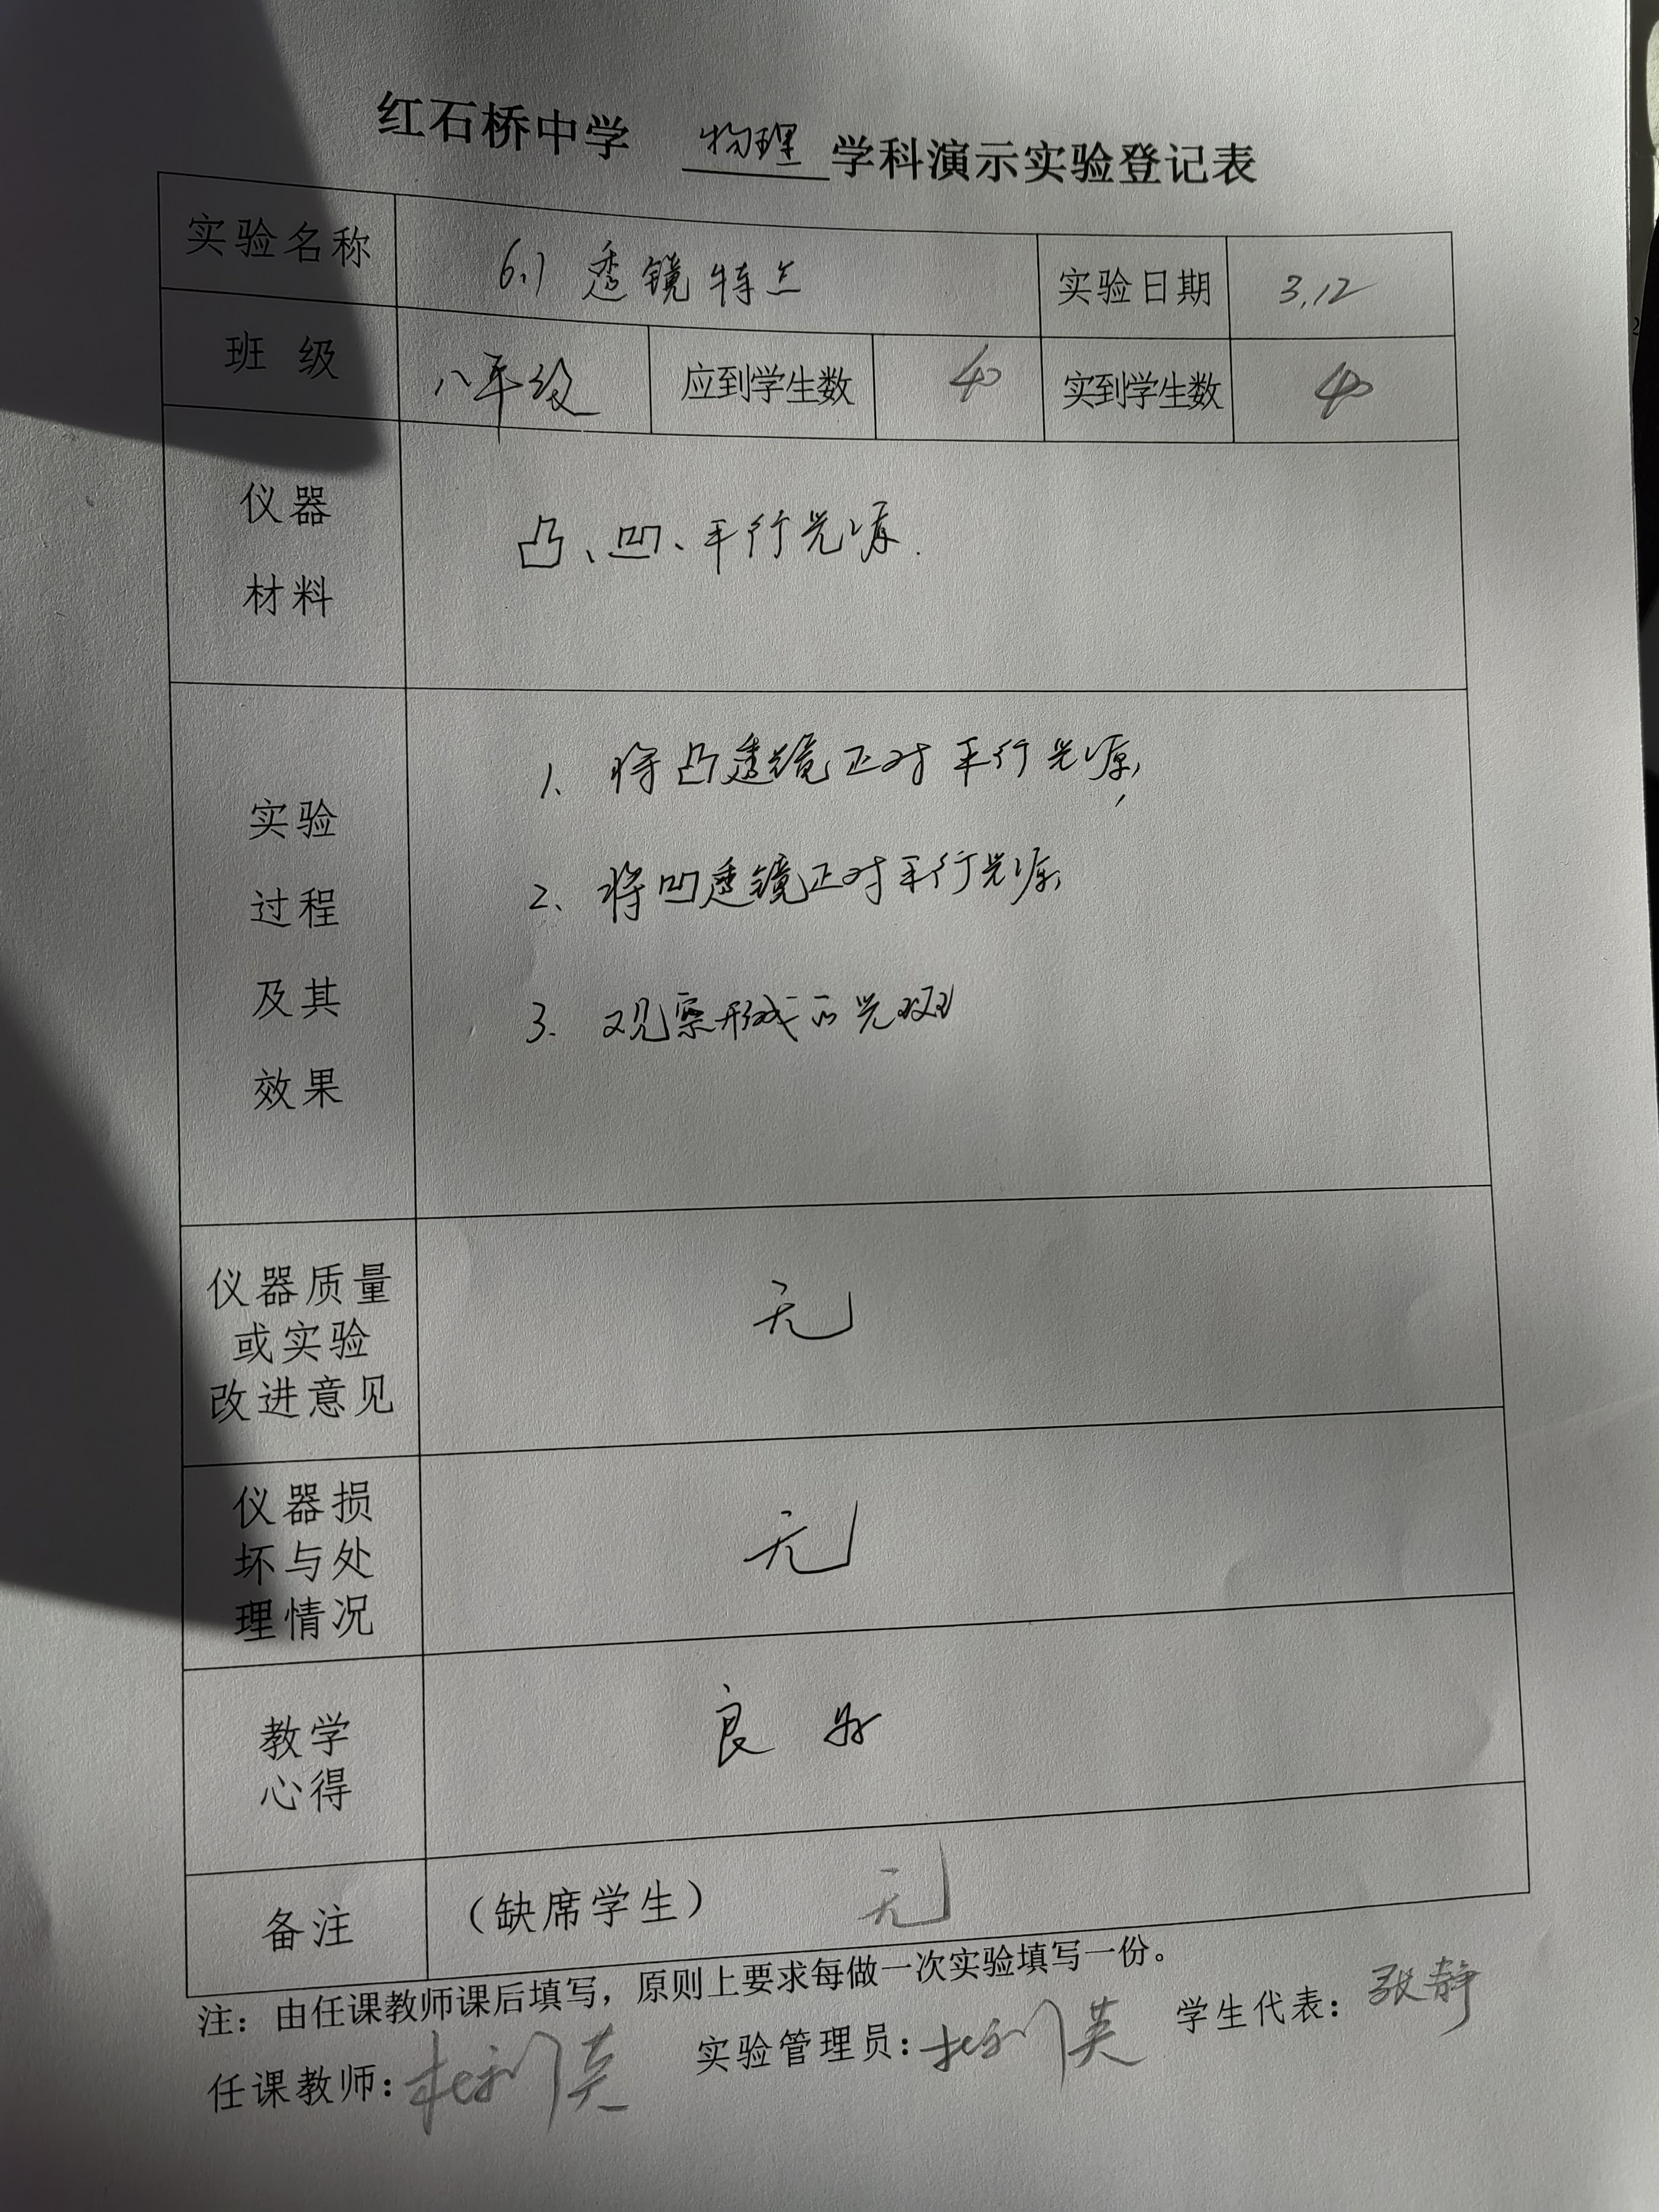 红石桥中学 物理 学科演示实验登记表
实验名称 6.1 透镜特点 实验日期 3.12
班级 八年级 应到学生数 40 实到学生数 40
仪器
材料
凸、凹、平行光源.
实验
过程
及其
效果
1、将凸透镜正对平行光源,
2、将凹透镜正对平行光源,
3. 观察形成的光斑
仪器质量
或实验
改进意见
无
仪器损
坏与处
理情况
无
教学
心得
良好
备注 （缺席学生） 无
注：由任课教师课后填写，原则上要求每做一次实验填写一份。
任课教师： 实验管理员： 学生代表：张静